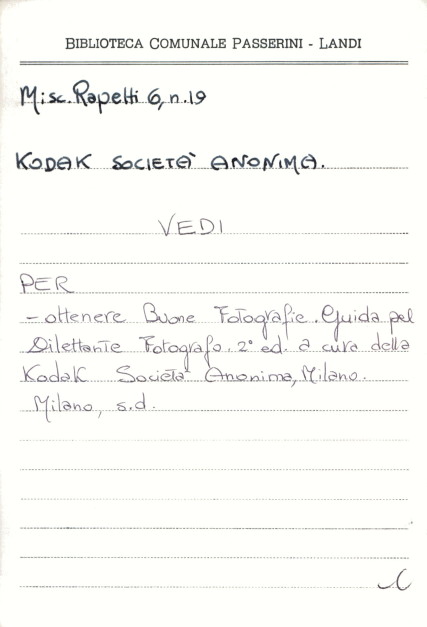 BIBLIOTECA COMUNALE PASSERINI - LANDI
Misc. Rapetti 6, n. 19
KODAK SOCIETÀ ANONIMA.
VEDI
PER
- ottenere Buone Fotografie. Guida pel
Dilettante Fotografo. 2° ed. a cura della
Kodak Società Anonima, Milano.
Milano, s.d.